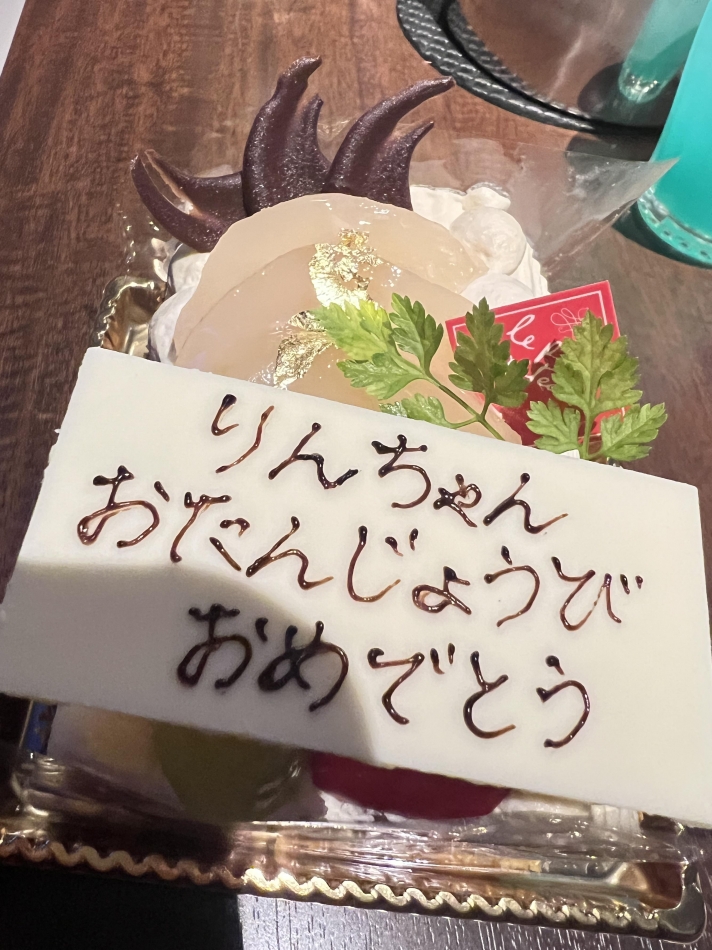 りんちゃん
おたんじょうび
おめでとう